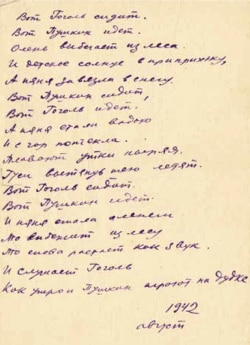 Вот Гоголь сидит.
Вот Пушкин идет.
Олень выбегает из леса.
И детское солнце в припрыжку,
А няня завязла в снегу.
Вот Пушкин сидит,
Вот Гоголь идет.
А няня стала водою
И с гор потекла...
Плавают утки наряд.
Гуси вытянув шею летят.
Вот Гоголь сидит.
Вот Пушкин идет.
И няня стала оленем
То выбежит из лесу
То снова растает как звук.
И слушает Гоголь
Как утром Пушкин играет на дудке
1942
август